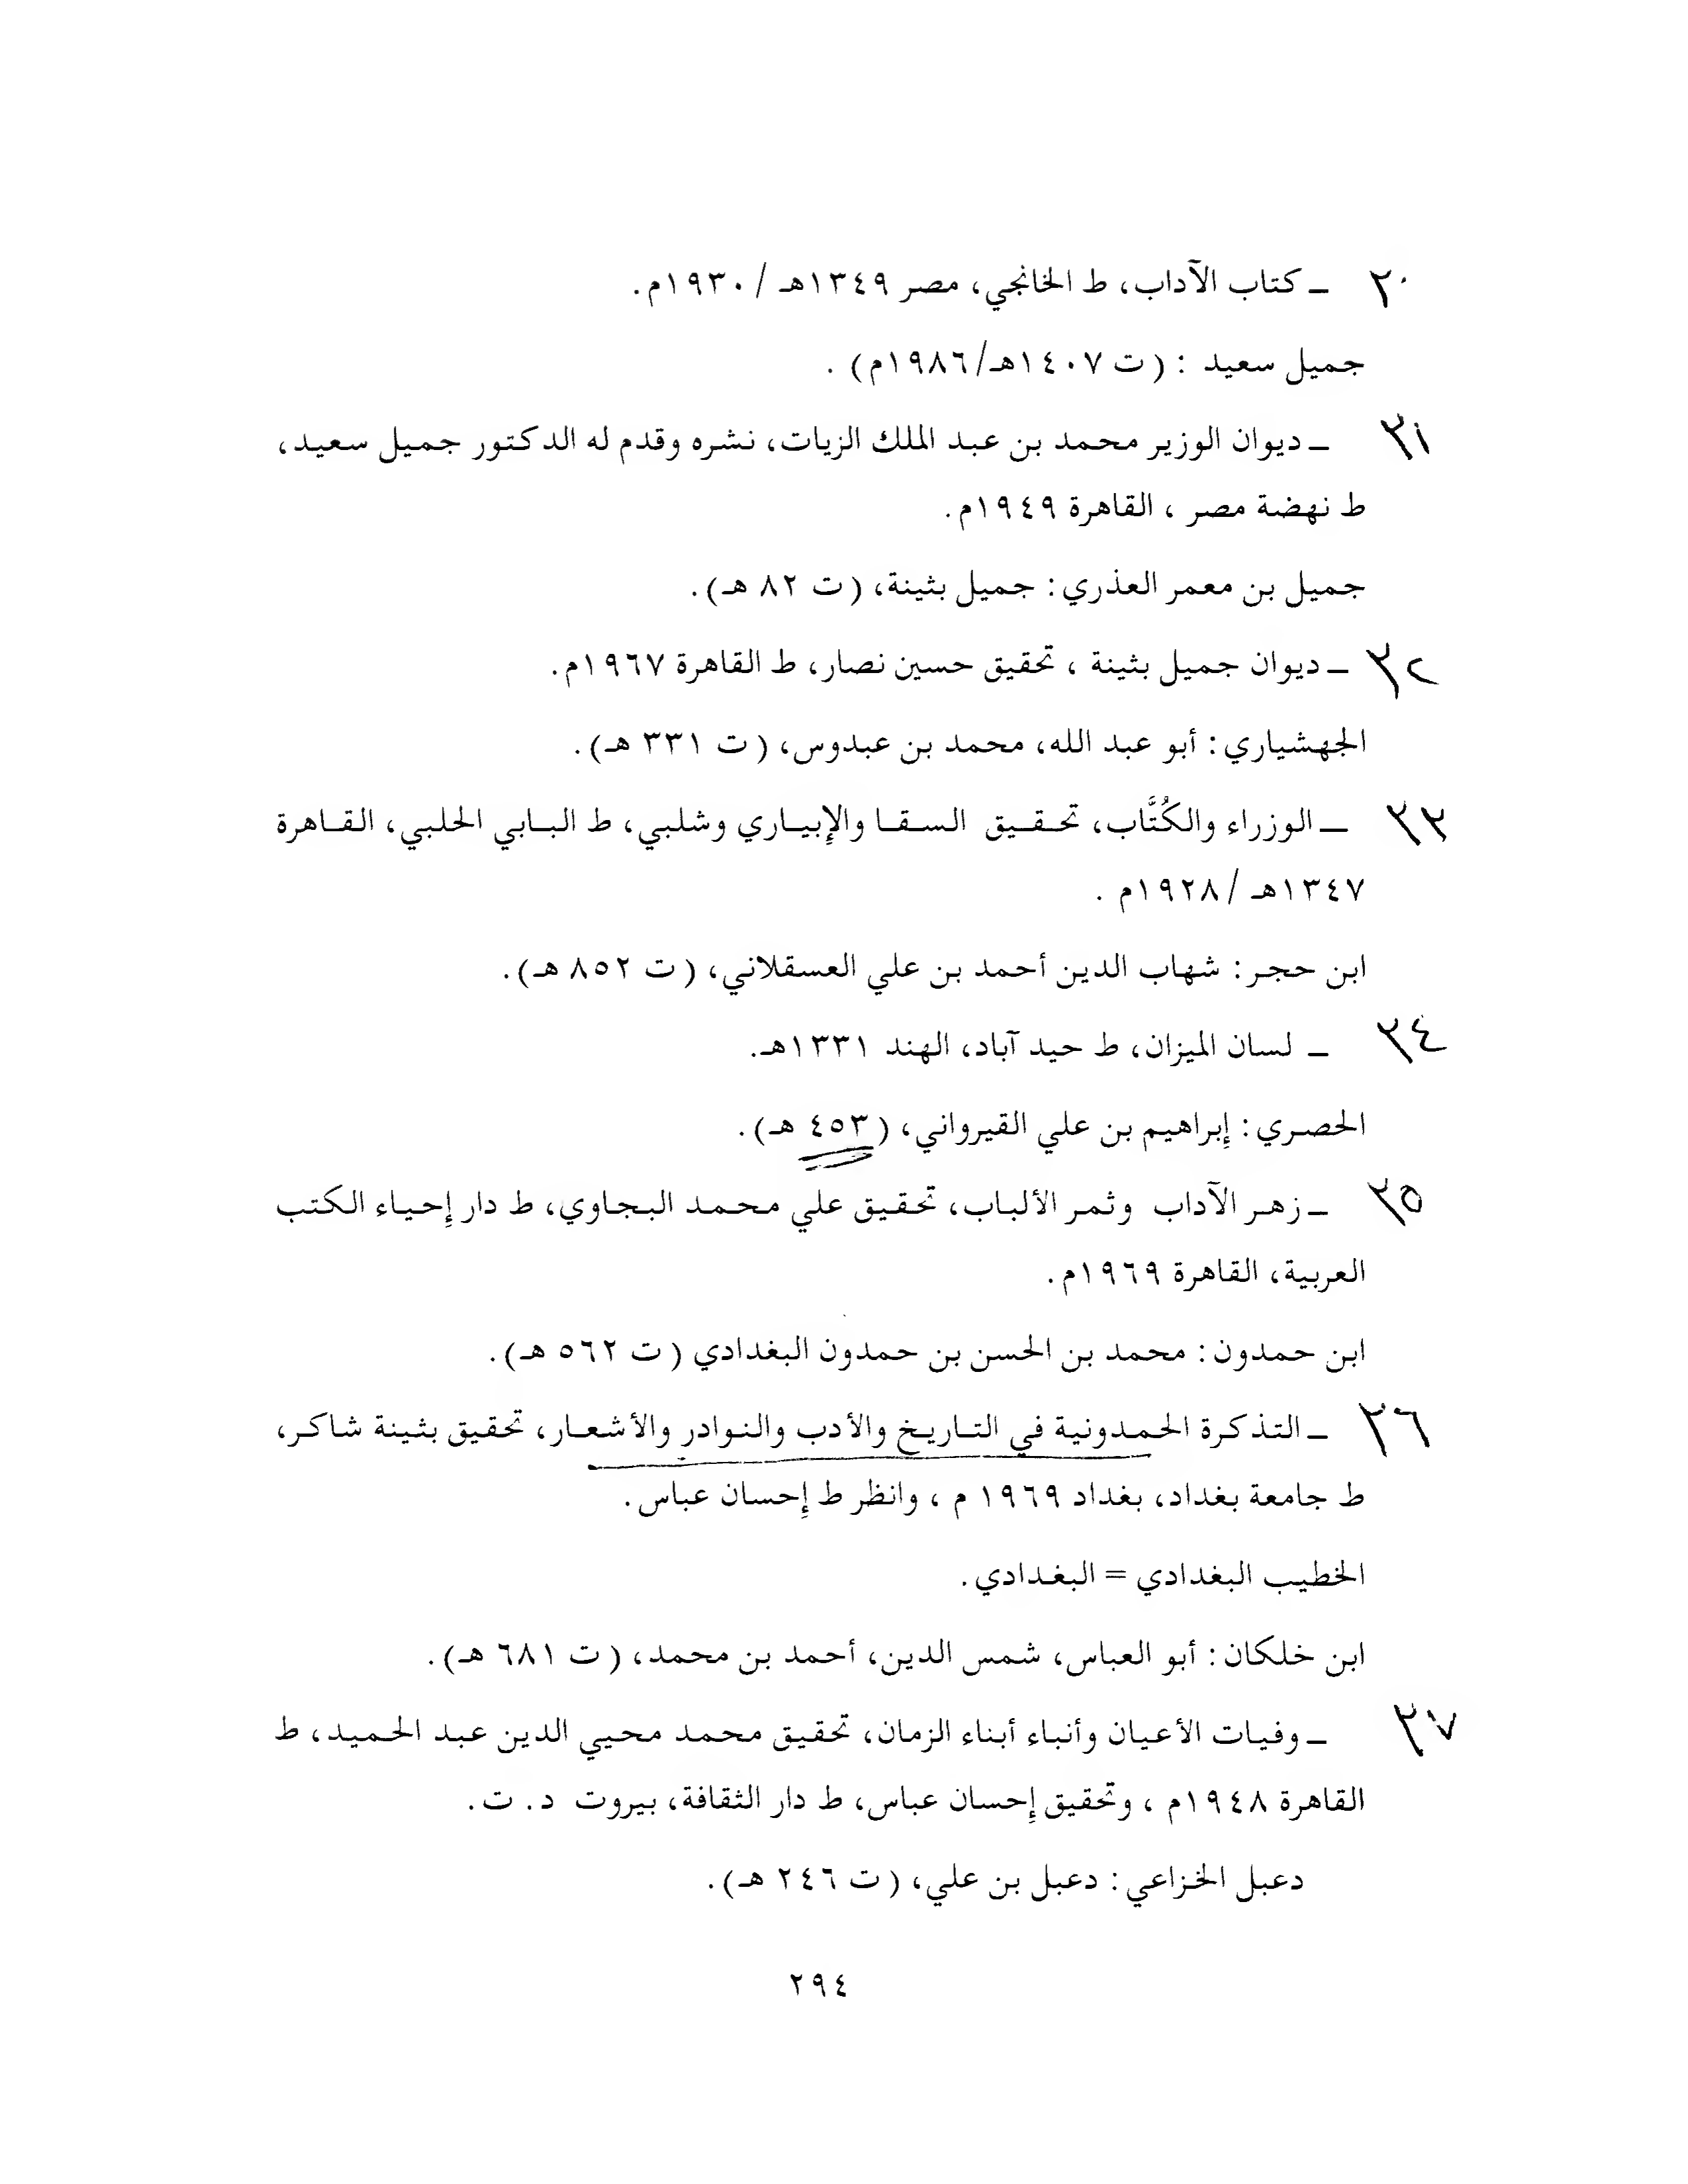 ٢٠ ــ كتاب الآداب، ط الخانجي، مصر ١٣٤٩هـ / ١٩٣٠م.
جميل سعيد : (ت ١٤٠٧هـ/١٩٨٦م) .
٢١ ــ ديوان الوزير محمد بن عبد الملك الزيات، نشره وقدم له الدكتور جميل سعيد،
ط نهضة مصر ، القاهرة ١٩٤٩م.
جميل بن معمر العذري: جميل بثينة، (ت ٨٢ هـ).
٢٢ ــ ديوان جميل بثينة ، تحقيق حسين نصار، ط القاهرة ١٩٦٧م.
الجهشياري: أبو عبد الله، محمد بن عبدوس، (ت ٣٣١ هـ).
٢٣ ــ الوزراء والكُتَّاب، تحقيق السقا والإبياري وشلبي، ط البابي الحلبي، القاهرة
١٣٤٧هـ /١٩٢٨م .
ابن حجر: شهاب الدين أحمد بن علي العسقلاني، (ت ٨٥٢ هـ).
٢٤ ــ لسان الميزان، ط حيد آباد، الهند ١٣٣١هـ.
الحصري: إبراهيم بن علي القيرواني، (٤٥٣ هـ).
٢٥ ــ زهر الآداب وثمر الألباب، تحقيق علي محمد البجاوي، ط دار إحياء الكتب
العربية، القاهرة ١٩٦٩م.
ابن حمدون: محمد بن الحسن بن حمدون البغدادي (ت ٥٦٢ هـ).
٢٦ ــ التذكرة الحمدونية في التاريخ والأدب والنوادر والأشعار، تحقيق بثينة شاكر،
ط جامعة بغداد، بغداد ١٩٦٩ م ، وانظر ط إحسان عباس.
الخطيب البغدادي = البغدادي.
ابن خلكان: أبو العباس، شمس الدين، أحمد بن محمد، (ت ٦٨١ هـ).
٢٧ ــ وفيات الأعيان وأنباء أبناء الزمان، تحقيق محمد محيي الدين عبد الحميد، ط
القاهرة ١٩٤٨م ، وتحقيق إحسان عباس، ط دار الثقافة، بيروت د. ت.
دعبل الخزاعي: دعبل بن علي، (ت ٢٤٦ هـ).
٢٩٤